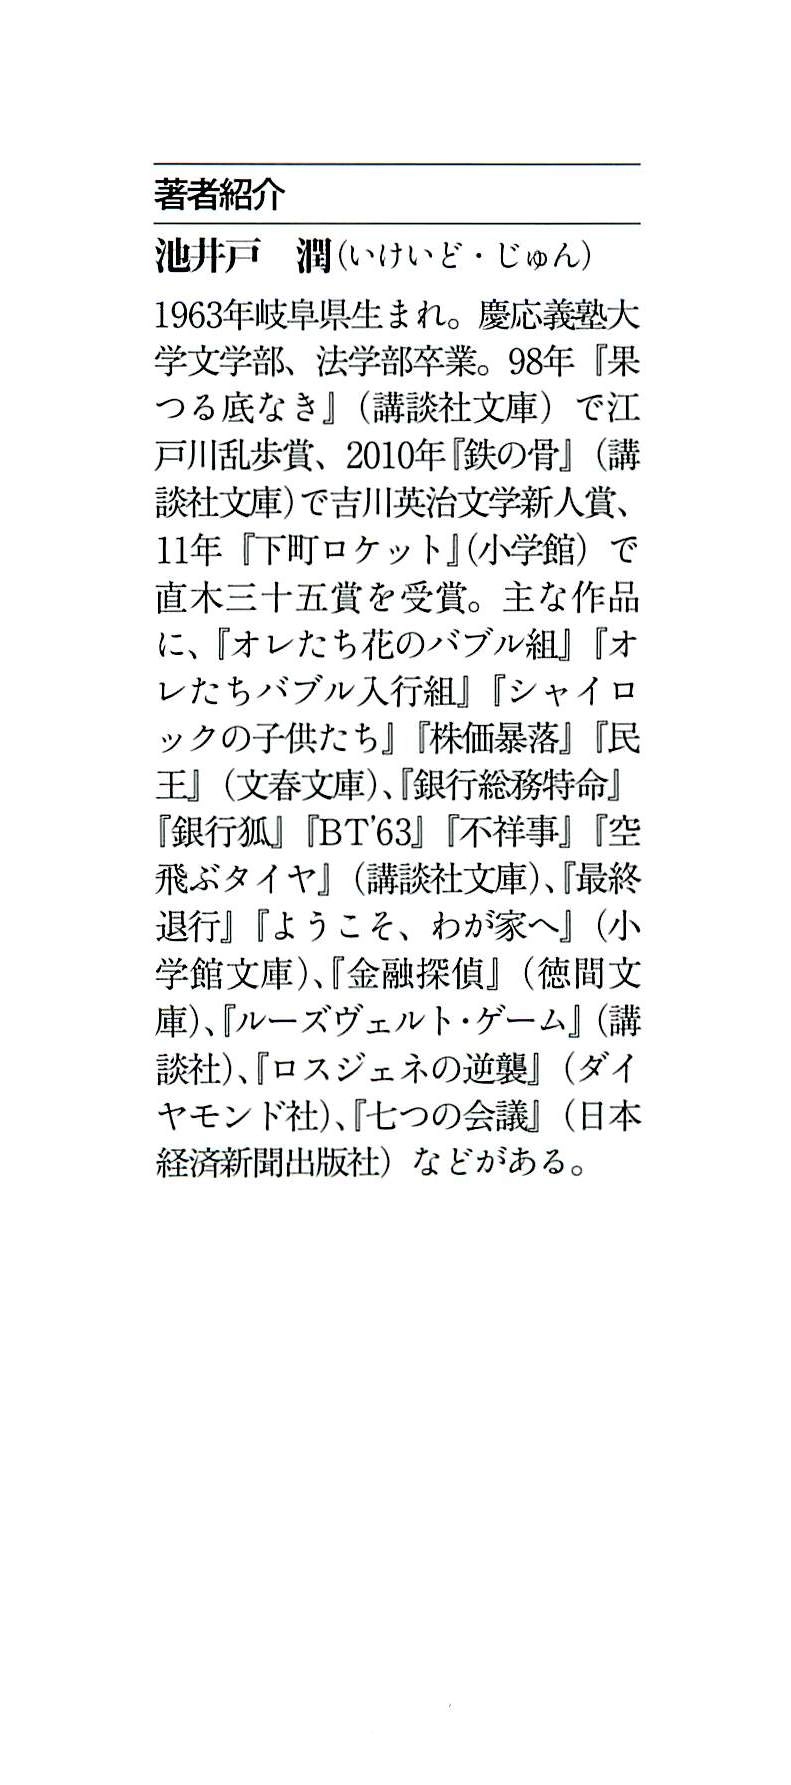 著者紹介
池井戸 潤(いけいど・じゅん)
1963年岐阜県生まれ。慶応義塾大
学文学部、法学部卒業。98年『果
つる底なき』(講談社文庫)で江
戸川乱歩賞、2010年『鉄の骨』(講
談社文庫)で吉川英治文学新人賞、
11年『下町ロケット』(小学館)で
直木三十五賞を受賞。主な作品
に、『オレたち花のバブル組』『オ
レたちバブル入行組』『シャイロ
ックの子供たち』『株価暴落』『民
王』(文春文庫)、『銀行総務特命』
『銀行狐』『BT’63』『不祥事』『空
飛ぶタイヤ』(講談社文庫)、『最終
退行』『ようこそ、わが家へ』(小
学館文庫)、『金融探偵』(徳間文
庫)、『ルーズヴェルト・ゲーム』(講
談社)、『ロスジェネの逆襲』(ダイ
ヤモンド社)、『七つの会議』(日本
経済新聞出版社)などがある。